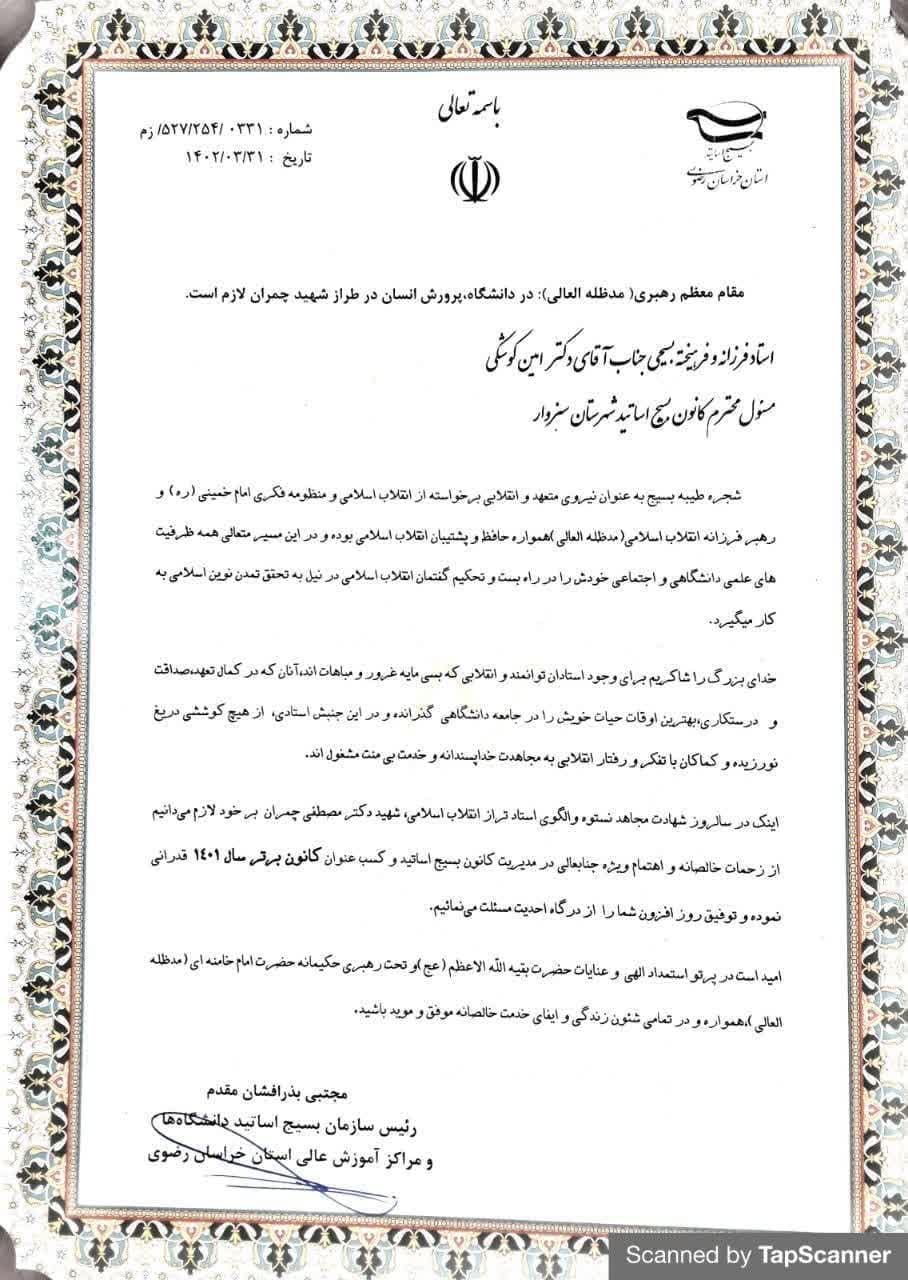 باسمه تعالی
بسیج اساتید
استان خراسان رضوی
شماره : ۰۳۳۱ /۵۲۷/۲۵۴/ زم
تاریخ : ۱۴۰۲/۰۳/۳۱
مقام معظم رهبری( مدظله العالی): در دانشگاه،پرورش انسان در طراز شهید چمران لازم است.
استاد فرزانه و فرهیخته بسیجی جناب آقای دکتر امین کوشکی
مسئول محترم کانون بسیج اساتید شهرستان سبزوار
شجره طیبه بسیج به عنوان نیروی متعهد و انقلابی برخواسته از انقلاب اسلامی و منظومه فکری امام خمینی (ره) و
رهبر فرزانه انقلاب اسلامی(مدظله العالی)همواره حافظ و پشتیبان انقلاب اسلامی بوده و در این مسیر متعالی همه ظرفیت
های علمی دانشگاهی و اجتماعی خودش را در راه بست و تحکیم گفتمان انقلاب اسلامی در نیل به تحقق تمدن نوین اسلامی به
کار میگیرد.
خدای بزرگ را شاکریم برای وجود استادان توانمند و انقلابی که بسی مایه غرور و مباهات اند،آنان که در کمال تعهد،صداقت
و درستکاری،بهترین اوقات حیات خویش را در جامعه دانشگاهی گذرانده و در این جنبش استادی، از هیچ کوششی دریغ
نورزیده و کماکان با تفکر و رفتار انقلابی به مجاهدت خداپسندانه و خدمت بی منت مشغول اند.
اینک در سالروز شهادت مجاهد نستوه والگوی استاد تراز انقلاب اسلامی، شهید دکتر مصطفی چمران بر خود لازم می‌دانیم
از زحمات خالصانه و اهتمام ویژه جنابعالی در مدیریت کانون بسیج اساتید و کسب عنوان کانون برتر سال ۱۴۰۱ قدرانی
نموده و توفیق روز افزون شما را از درگاه احدیت مسئلت می‌نمائیم.
امید است در پرتو استمداد الهی و عنایات حضرت بقیه الله الاعظم (عج)و تحت رهبری حکیمانه حضرت امام خامنه ای (مدظله
العالی)،همواره و در تمامی شئون زندگی و ایفای خدمت خالصانه موفق و موید باشید.
مجتبی بذرافشان مقدم
رئیس سازمان بسیج اساتید دانشگاه‌ها
و مراکز آموزش عالی استان خراسان رضوی
Scanned by TapScanner